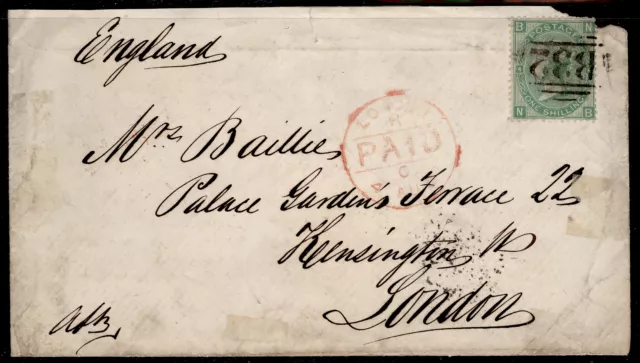 England
B N
POSTAGE
ONE SHILLING
N B
LONDON
PAID
Mrs Baillie,
Palace Gardens Terrace 22
Kensington W
London